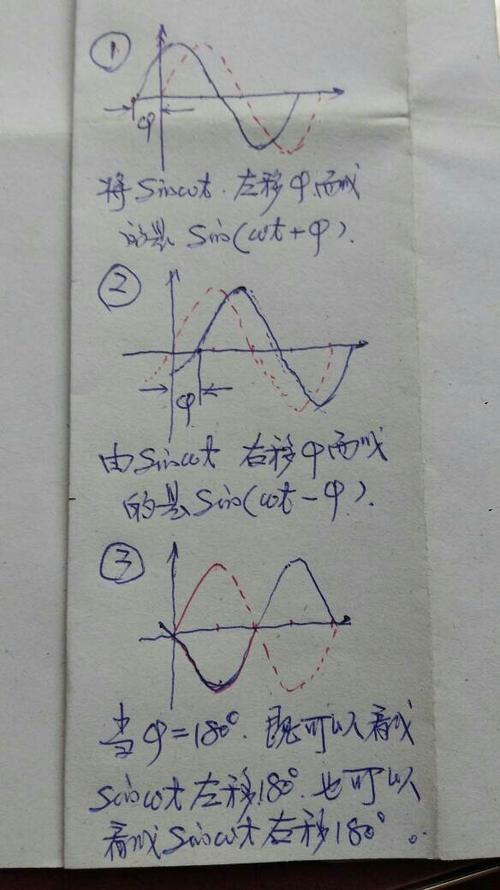 ①
φ
将Sinωt.左移φ而成
的是 Sin(ωt+φ).
②
φ
由Sinωt 右移φ而成
的是Sin(ωt-φ).
③
当φ=180°.既可以看成
sinωt左移180°.也可以
看成Sinωt右移180°。